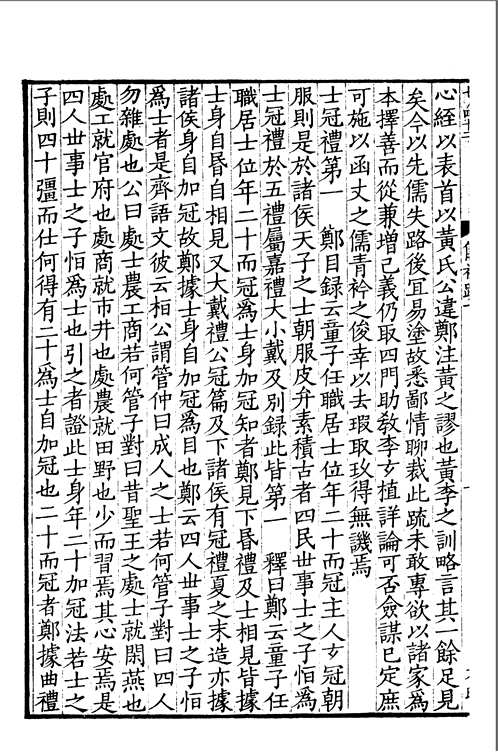 心絰以表首以黃氏公違鄭注黃之謬也黃李之訓略言其一餘足見
矣今以先儒失路後宜易塗故悉鄙情聊裁此疏未敢專欲以諸家為
本擇善而從兼增己義仍取四門助教李玄植詳論可否僉謀已定庶
可施以函丈之儒青衿之俊幸以去瑕取玖得無譏焉
士冠禮第一　鄭目録云童子任職居士位年二十而冠主人玄冠朝
服則是於諸侯天子之士朝服皮弁素積古者四民丗事士之子恒為
士冠禮於五禮屬嘉禮大小戴及別録此皆第一　釋曰鄭云童子任
職居士位年二十而冠為士身加冠知者鄭見下昏禮及士相見皆據
士身自昏自相見又大戴禮公冠篇及下諸侯有冠禮夏之末造亦據
諸侯身自加冠故鄭據士身自加冠為目也鄭云四人丗事士之子恒
為士者是齊語文彼云相公謂管仲曰成人之士若何管子對曰四人
勿雜處也公曰處士農工商若何管子對曰昔聖王之處士就閑燕也
處工就官府也處商就市井也處農就田野也少而習焉其心安焉是
四人丗事士之子恒為士也引之者證此士身年二十加冠法若士之
子則四十彊而仕何得有二十為士自加冠也二十而冠者鄭據曲禮